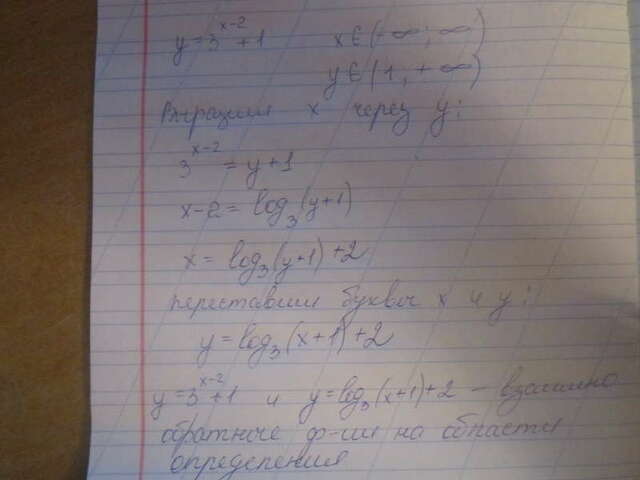 y = 3^(x-2) + 1 x ∈ (-∞; ∞)
y ∈ (1, +∞)
Выразим x через y:
3^(x-2) = y+1
x-2 = log₃(y+1)
x = log₃(y+1) + 2
переставим буквы x и y:
y = log₃(x+1) + 2
y = 3^(x-2) + 1 и y = log₃(x+1) + 2 – взаимно
обратные ф-ии на области
определения